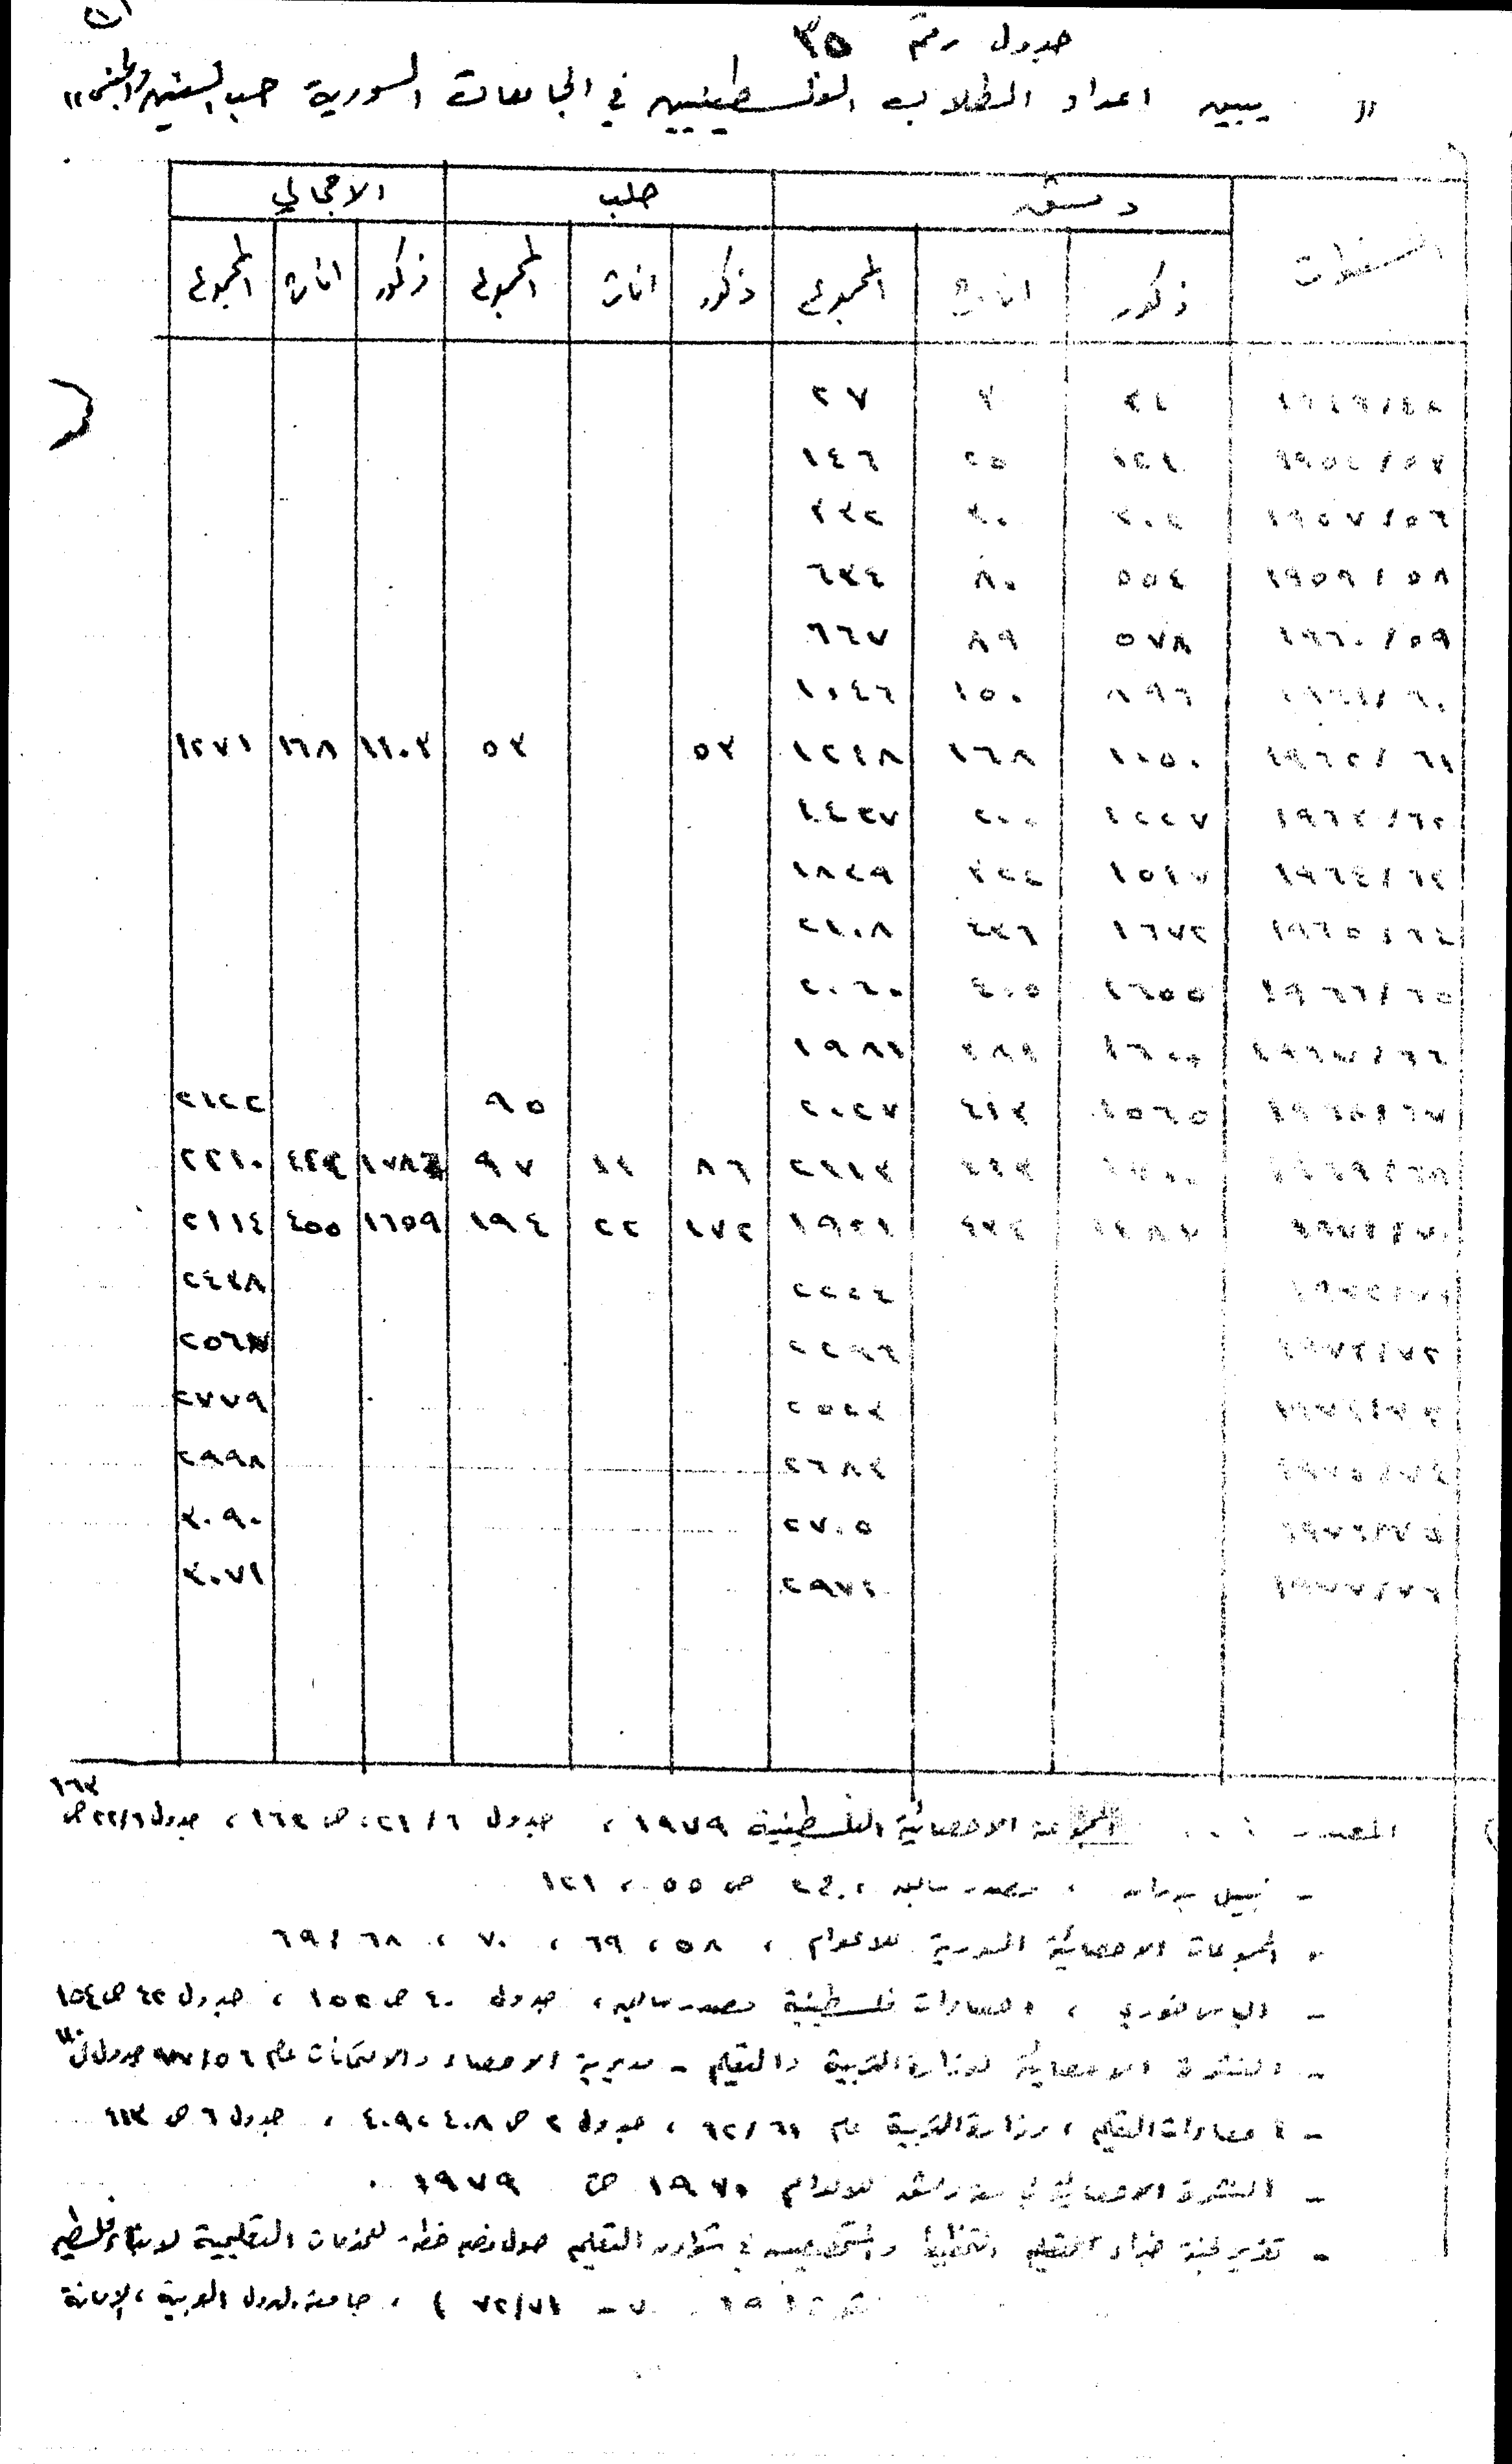 جدول رقم ٣٥
" يبين اعداد الطلاب الفلسطينيين في الجامعات السورية حسب السنين والجنس "
السنوات دمشق حلب الاجمالي
ذكور اناث المجموع ذكور اناث المجموع ذكور اناث المجموع
١٩٤٩/٤٨ ٢٤ ٣ ٢٧
١٩٥٤/٥٣ ١٢١ ٢٥ ١٤٦
١٩٥٧/٥٦ ٣٠ ٣٣٢
١٩٥٩/٥٨ ٥٥٤ ٨٠ ٦٣٤
١٩٦٠/٥٩ ٥٧٨ ٨٩ ٦٦٧
١٩٦١/٦٠ ٨٩٦ ١٥٠ ١٠٤٦
١٩٦٢/٦١ ١٠٥٠ ١٦٨ ١٢١٨ ٥٣ ٥٣ ١١٠٣ ١٦٨ ١٢٧١
١٩٦٣/٦٢ ١٢٢٧ ٢٠٠ ١٤٢٧
١٩٦٤/٦٣ ١٥١٧ ٣٢٢ ١٨٣٩
١٩٦٥/٦٤ ١٦٧٢ ٤٣٦ ٢١٠٨
١٩٦٦/٦٥ ١٦٥٥ ٤٠٥ ٢٠٦٠
١٩٦٧/٦٦ ١٦٠٠ ١٩٨١
١٩٦٨/٦٧ ٤١٣ ٢٠٢٧ ٩٥ ٢١٢٢
١٩٦٩/٦٨ ١٧٠٠ ٤١٣ ٢١١٣ ٨٦ ١١ ٩٧ ١٧٨٦ ٤٢٤ ٢٢١٠
١٩٧١/٧٠ ١٤٨٧ ٤٣٣ ١٩٢١ ١٧٢ ٢٢ ١٩٤ ١٦٥٩ ٤٥٥ ٢١١٤
١٩٧٢/٧١ ٢٢٢٤ ٢٤٣٨
١٩٧٣/٧٢ ٢٢٩٦ ٢٥٦٧
١٩٧٤/٧٣ ٢٥٢٣ ٢٧٧٩
١٩٧٥/٧٤ ٢٦٨٣ ٢٩٩٨
١٩٧٦/٧٥ ٢٧٠٥ ٣٠٩٠
١٩٧٧/٧٦ ٢٩٧١ ٣٠٧١
المصدر المجموعة الاحصائية الفلسطينية ١٩٧٩ ، جدول ٢١/٦ ، ص ١٦٣ ، جدول ٢٢/٦ ص ١٦٣
- نبيل بدران ، مصدر سابق ، ج٢ ص ٥٥ ، ١٢١
- المجموعات الاحصائية السورية للاعوام ، ٥٨ ، ٦٩ ، ٧٠ ، ٦٩/٦٨
- الياس خوري ، احصاءات فلسطينية مصدر سابق ، جدول ٤٠ ص ١٥٢ ، جدول ٤٢ ص ١٥٤
- النشرة الاحصائية لوزارة التربية والتعليم - مديرية الاحصاء والامتحانات عام ٥٦/
- احصاءات التعليم ، وزارة التربية عام ٦٢/٦١ ، جدول ٢ ص ٤٠٨ ، ٤٠٩ ، جدول ٦ ص ٤١٣
- النشرة الاحصائية للاعوام ١٩٧٠ حتى ١٩٧٩ .
- تقرير لجنة خبراء التعليم والتخطيط والمتخصصين في شؤون التعليم حول وضع خطة للخدمات التعليمية لابناء فلسطين
٧٠ - ٧٢/٧١ ) ، جامعة الدول العربية ، الامانة